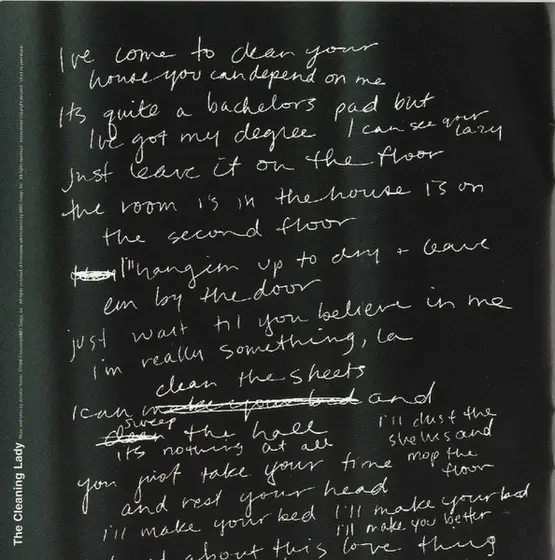 The Cleaning Lady
I've come to clean your
house you can depend on me
Its quite a bachelors pad but
I've got my degree I can see your
lazy
Just leave it on the floor
the room is in the house is on
the second floor
I'll hang em up to dry + leave
em by the door
just wait til you believe in me
i'm really something, la
clean the sheets
I can make your bed and
sweep
clean the hall
its nothing at all
i'll dust the
shelves and
mop the
floor
you just take your time
and rest your head
i'll make your bed I'll make your bed
i'll make you better
about this love thing